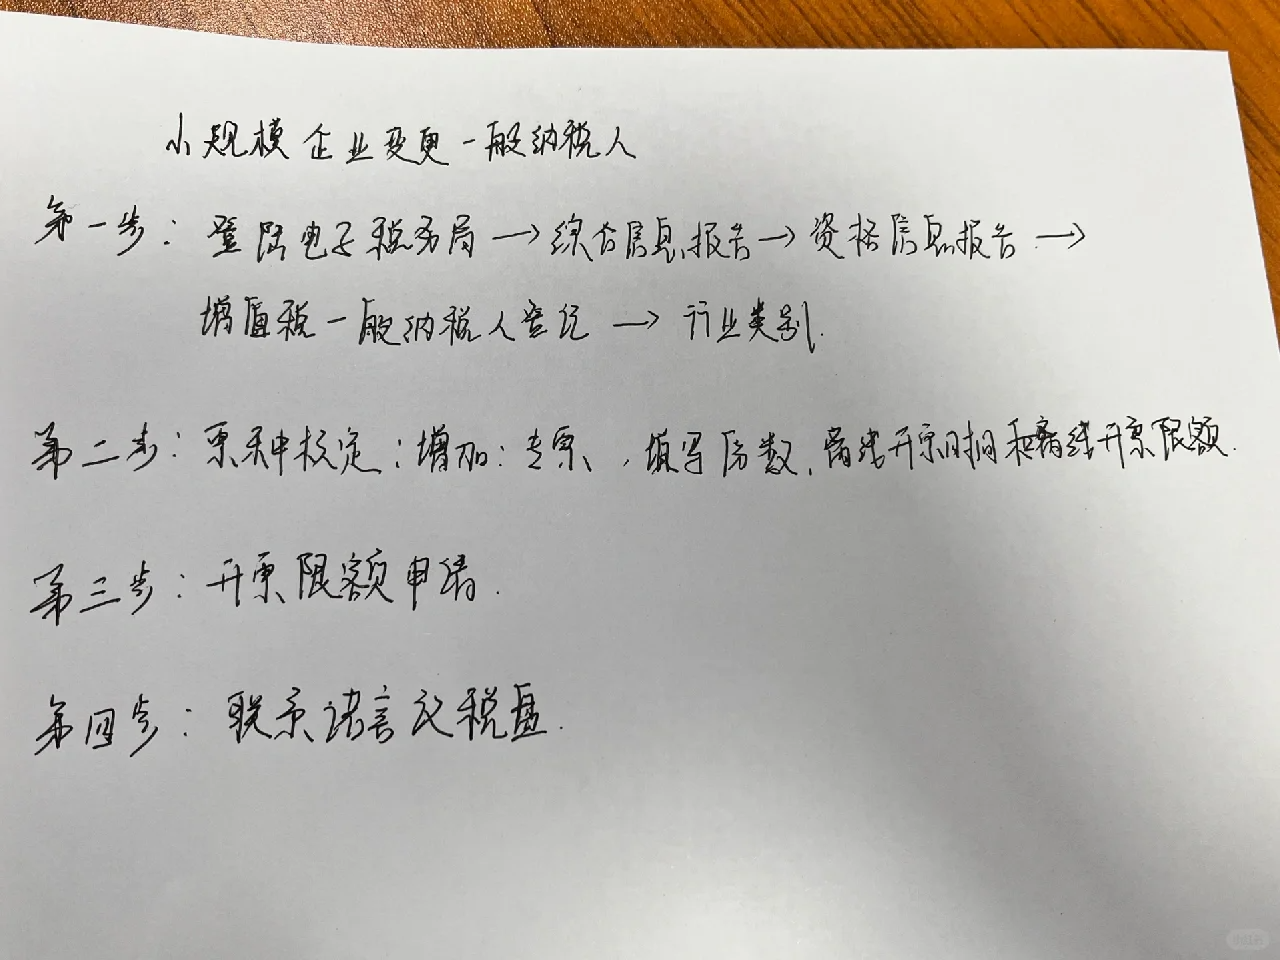 小规模企业变更一般纳税人
第一步：登陆电子税务局→综合信息报告→资格信息报告→
增值税一般纳税人登记→行业类别.
第二步：票种核定：增加：专票，填写份数，离线开票时间和离线开票限额.
第三步：开票限额申请.
第四步：联系 税盘.